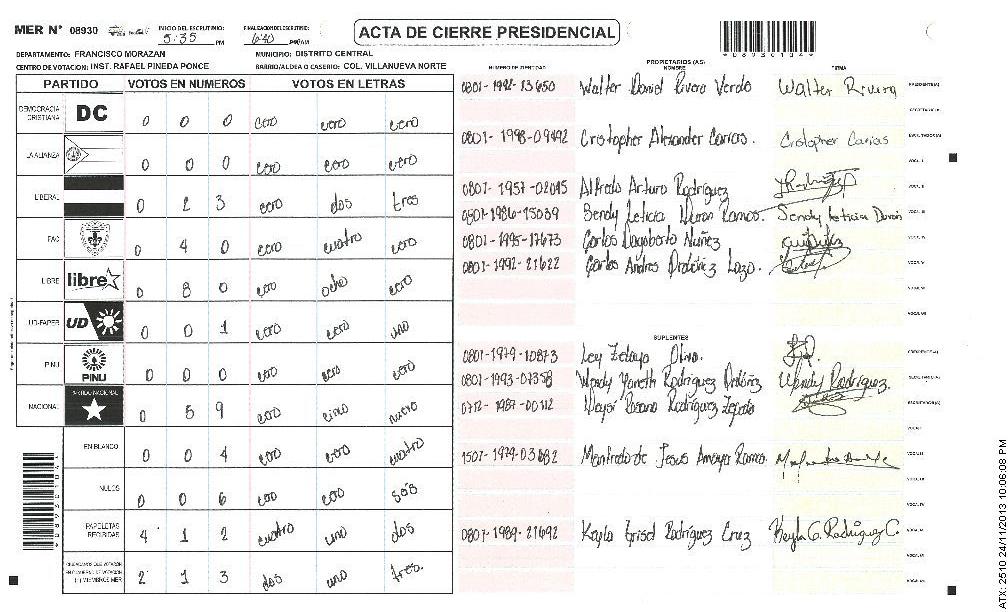 MER N° 08930
INICIO DEL ESCRUTINIO: 5:35 PM
FINALIZACION DEL ESCRUTINIO: 6:40 PM
ACTA DE CIERRE PRESIDENCIAL
*08930134*
DEPARTAMENTO: FRANCISCO MORAZAN
MUNICIPIO: DISTRITO CENTRAL
CENTRO DE VOTACION: INST. RAFAEL PINEDA PONCE
BARRIO/ALDEA O CASERIO: COL. VILLANUEVA NORTE
PARTIDO VOTOS EN NUMEROS VOTOS EN LETRAS
DEMOCRACIA CRISTIANA DC 0 0 0 cero cero cero
LA ALIANZA 0 0 0 cero cero cero
LIBERAL 0 2 3 cero dos tres
PAC 0 4 0 cero cuatro cero
LIBRE libre 0 8 0 cero ocho cero
UD-FAPER UD 0 0 1 cero cero uno
PINU PINU 0 0 0 cero cero cero
NACIONAL PARTIDO NACIONAL 0 5 9 cero cinco nueve
EN BLANCO 0 0 4 cero cero cuatro
NULOS 0 0 6 cero cero seis
PAPELETAS RECIBIDAS 4 1 2 cuatro uno dos
CIUDADANOS QUE VOTARON EN CUADERNO DE VOTACION (+) MIEMBROS MER 2 1 3 dos uno tres.
NUMERO DE IDENTIDAD
PROPIETARIOS (AS) NOMBRE
FIRMA
0801-1992-13650 Walter Daniel Rivera Verde Walter Rivera PRESIDENTE(A)
SECRETARIO(A)
0801-1998-09492 Cristopher Alexander Carias. Cristopher Carias ESCRUTADOR(A)
VOCAL I
0801-1957-02045 Alfredo Arturo Rodríguez VOCAL II
0801-1986-15039 Sendy Leticia Duron Ramos. Sendy Leticia Durón VOCAL III
0801-1995-17673 Carlos Dagoberto Nuñez VOCAL IV
0801-1992-21622 Carlos Andres Ordóñez Lazo. VOCAL V
VOCAL VI
VOCAL VII
SUPLENTES
0801-1979-10873 Ley Zelaya Oliva. PRESIDENTE(A)
0801-1993-07358 Wendy Yaneth Rodríguez Ordóñez Wendy Rodríguez. SECRETARIO(A)
0712-1987-00112 Rosario Rodríguez Zepeda ESCRUTADOR(A)
VOCAL I
1507-1979-03682 Manfredo de Jesus Amaya Ramos. VOCAL II
VOCAL III
VOCAL IV
0801-1989-21692 Keyla Grisel Rodríguez Cruz Keyla G. Rodríguez C. VOCAL V
VOCAL VI
VOCAL VII
ATX: 2510 24/11/2013 10:06:08 PM